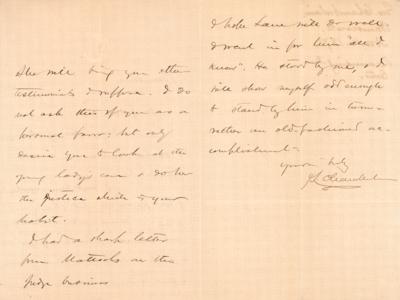 She will bring you other
testimonials I suppose. I do
not ask this of you as a
personal favor: but only
desire you to look at the
young lady's case & do her
the justice which is your
habit.
I had a sharp letter
from Mattocks on the
Judge business
I hope Lane will do well
I went in for him "all I
knew". He stood by me, & I
will show myself odd enough
to stand by him in turn—
rather an old-fashioned ac-
complishment.
yours truly
J L Chamberlain